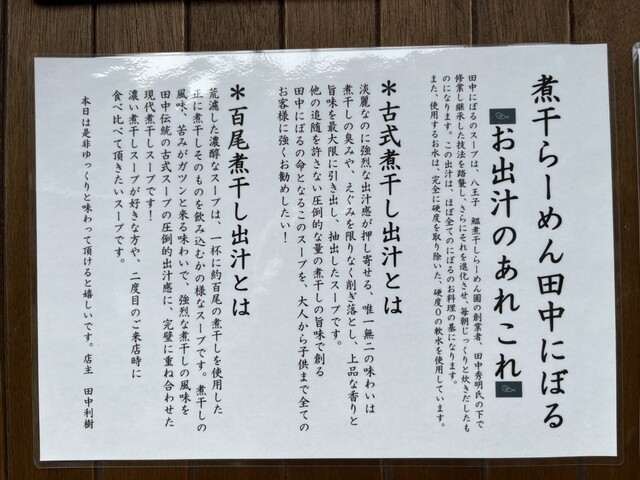 煮干らーめん田中にぼる
お出汁のあれこれ
田中にぼるのスープは、八王子 煮干しらーめん圓の創業者、田中秀明氏の下で
修業し継承した技法を踏襲し、さらにそれを進化させ、毎朝じっくりと炊きだしたも
のになります。この出汁は、ほぼ全てのにぼるのお料理の基になります。
また、使用するお水は、完全に硬度を取り除いた、硬度0の軟水を使用しています。
＊古式煮干し出汁とは
淡麗なのに強烈な出汁感が押し寄せる、唯一無二の味わいは
煮干しの臭みや、えぐみを限りなく削ぎ落とし、上品な香りと
旨味を最大限に引き出し、抽出したスープです。
他の追随を許さない圧倒的な量の煮干しの旨味で創る
田中にぼるの命となるこのスープを、大人から子供まで全ての
お客様に強くお勧めしたい！
＊百尾煮干し出汁とは
荒濾した濃厚なスープは、一杯に約百尾の煮干しを使用した
正に煮干しそのものを飲み込むかの様なスープです。煮干しの
風味、苦みがガツンと来る味わいで、強烈な煮干しの風味を
田中伝統の古式スープの圧倒的出汁感に、完璧に重ね合わせた
現代煮干しスープです！
濃い煮干しスープが好きな方や、二度目のご来店時に
食べ比べて頂きたいスープです。
本日は是非ゆっくりと味わって頂けると嬉しいです。店主 田中利樹